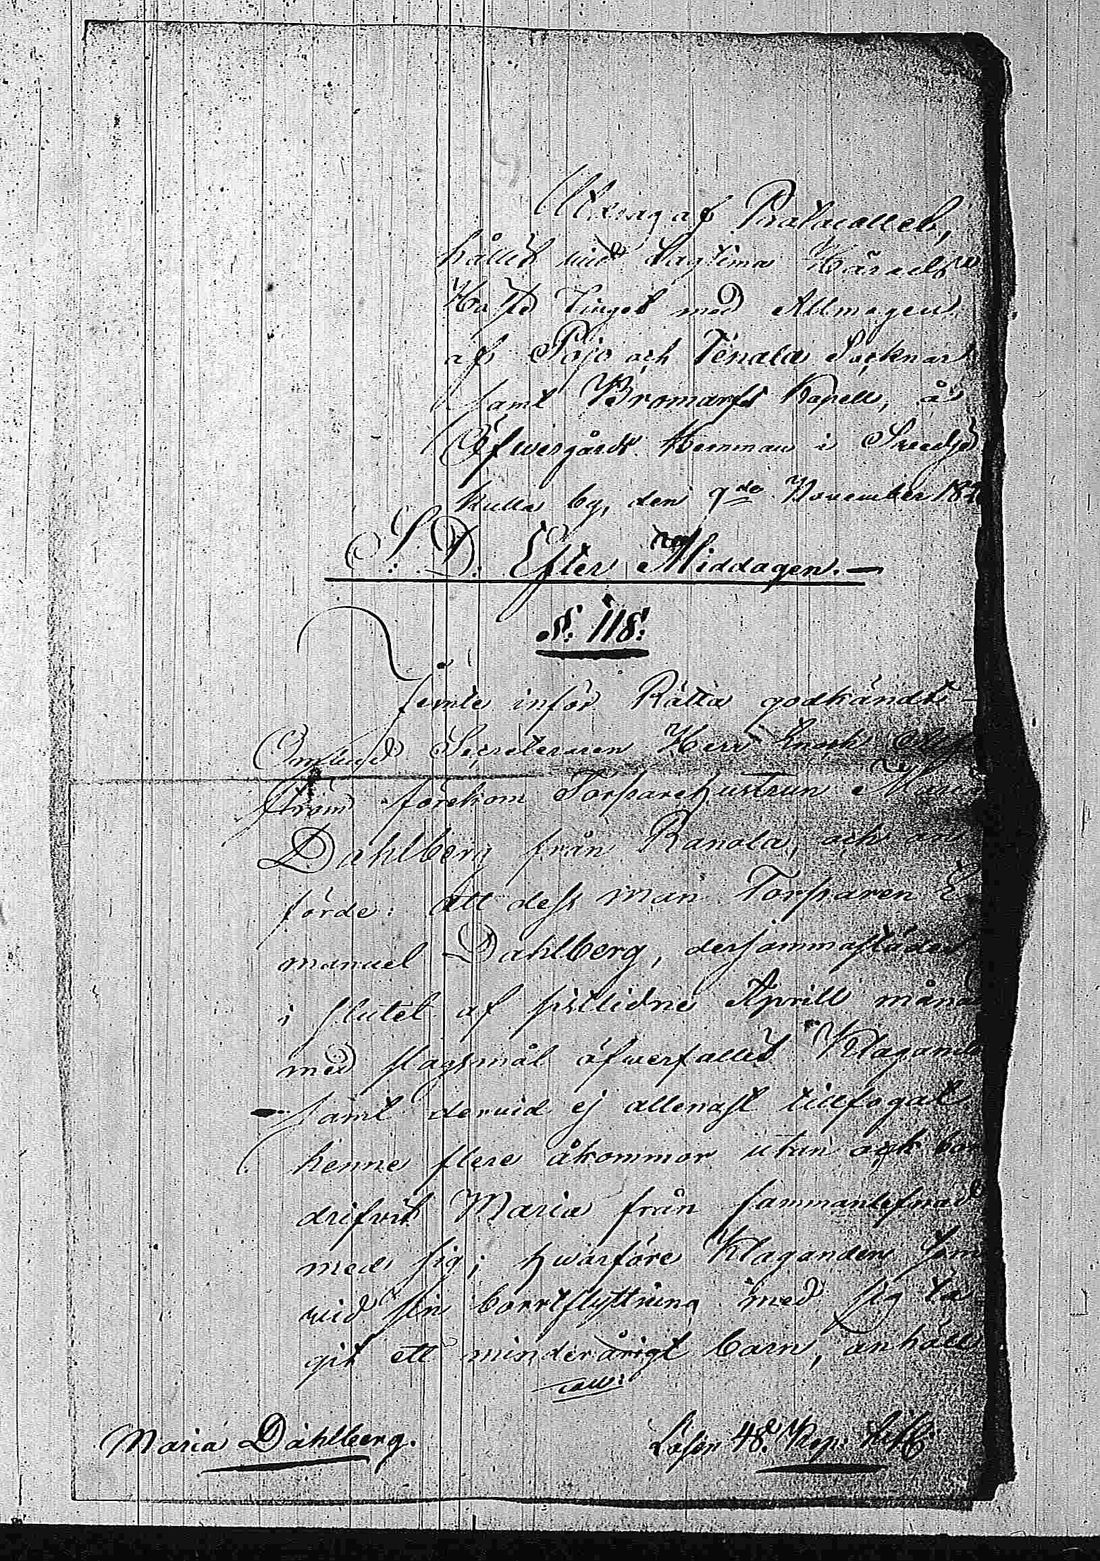 Utdrag af Protocollet,
hållit vid lagtima Härads
Höste Tinget med Allmogen
af Pojo och Tenala Socknar
samt Bromarfs Kapell, å
Öfwergårds Hemman i Svedje
kulla by, den 9de November 18
S. D. Efter Middagen.—
§. 118.
Jemte inför Rätta godkändt
Ombud Secreteraren Herr
ström förekom Torparehustrun Mari
Dahlberg från Ranola, och
förde: att dess man Torparen E
manuel Dahlberg, dersammastädes
i slutet af sistlidne Aprill måna
med slagsmål öfwerfallit Klagand
samt dervid ej allenast tillfogat
henne flere åkommor utan ock bor
drifvit Maria från sammanlefnad
med sig; hwarföre Klaganden som
vid sin bortflyttning med sig ta
git ett minderårigt barn, anhåll
Maria Dahlberg.
Lösen 48. Kop.